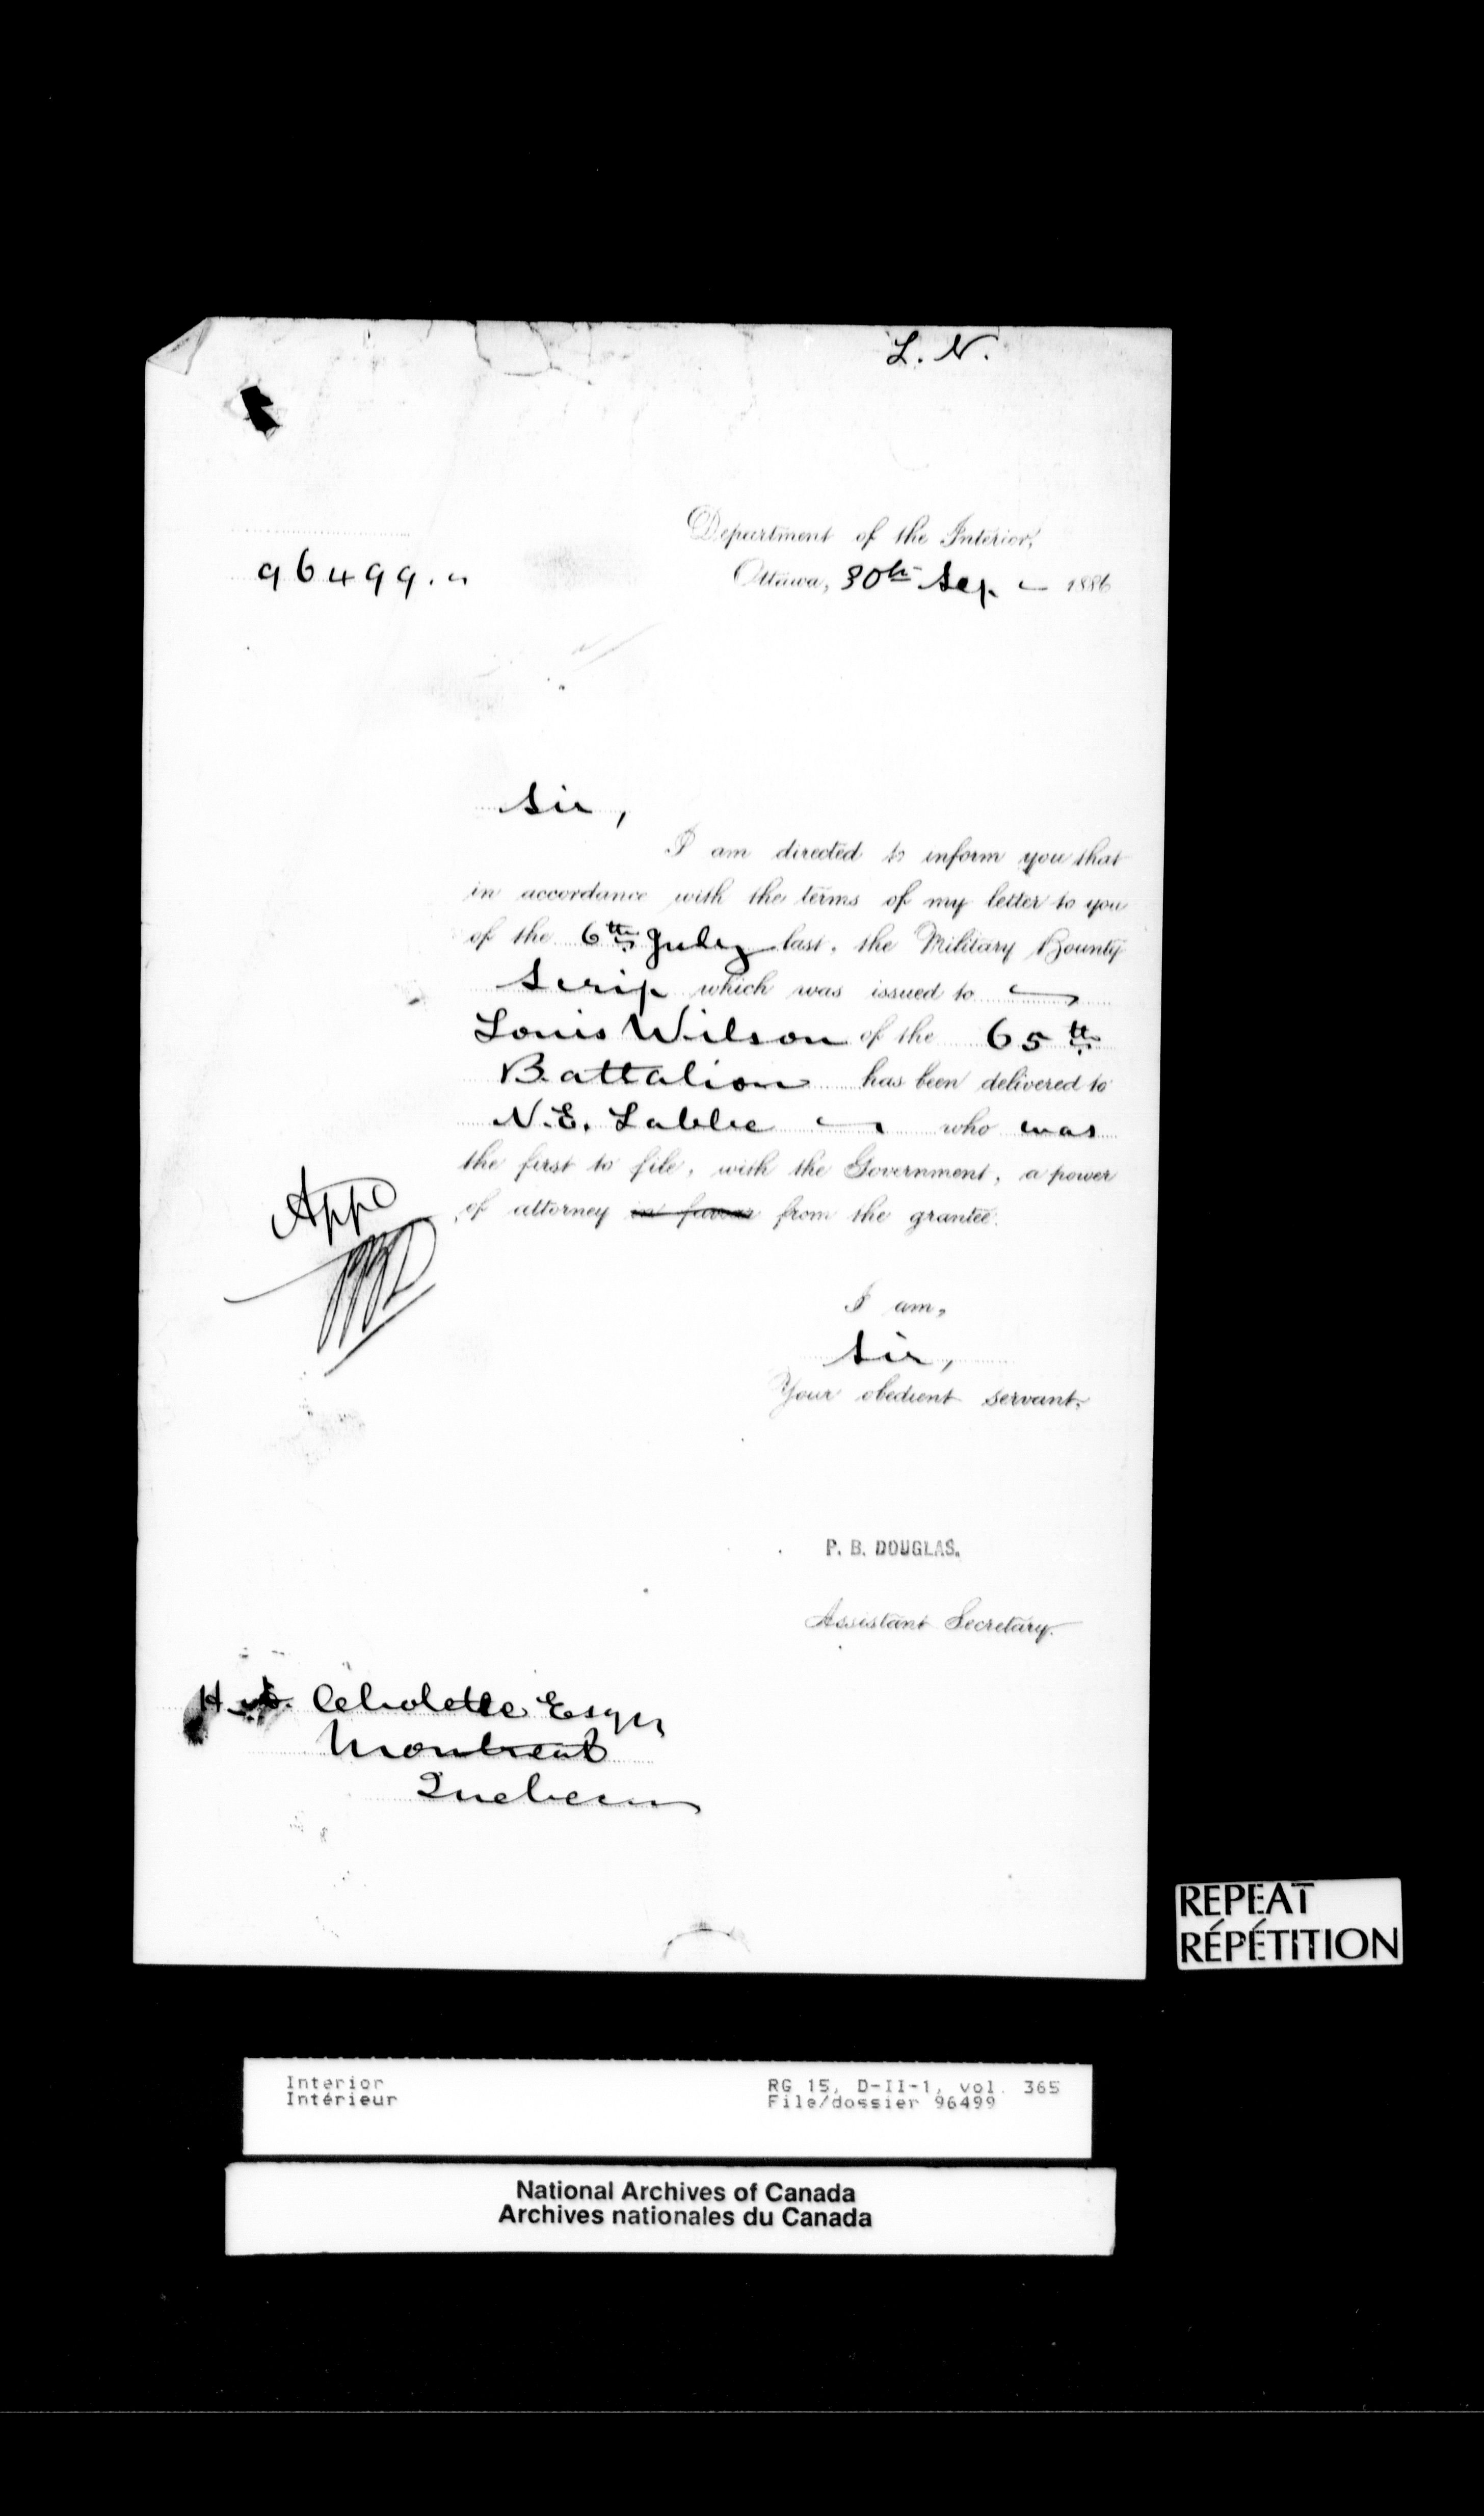 L. N.
Department of the Interior,
96499.
Ottawa, 30th Sep. 1886
Sir,
I am directed to inform you that
in accordance with the terms of my letter to you
of the 6th July last, the Military Bounty
Scrip which was issued to
Louis Wilson of the 65th
Battalion has been delivered to
N. E. Labbe who was
the first to file, with the Government, a power
of attorney in favor from the grantee.
App
I am,
Sir,
Your obedient servant,
P. B. DOUGLAS.
Assistant Secretary.
H. Esqr
Montreal
Quebec
REPEAT
RÉPÉTITION
Interior RG 15, D-II-1, vol. 365
Intérieur File/dossier 96499
National Archives of Canada
Archives nationales du Canada